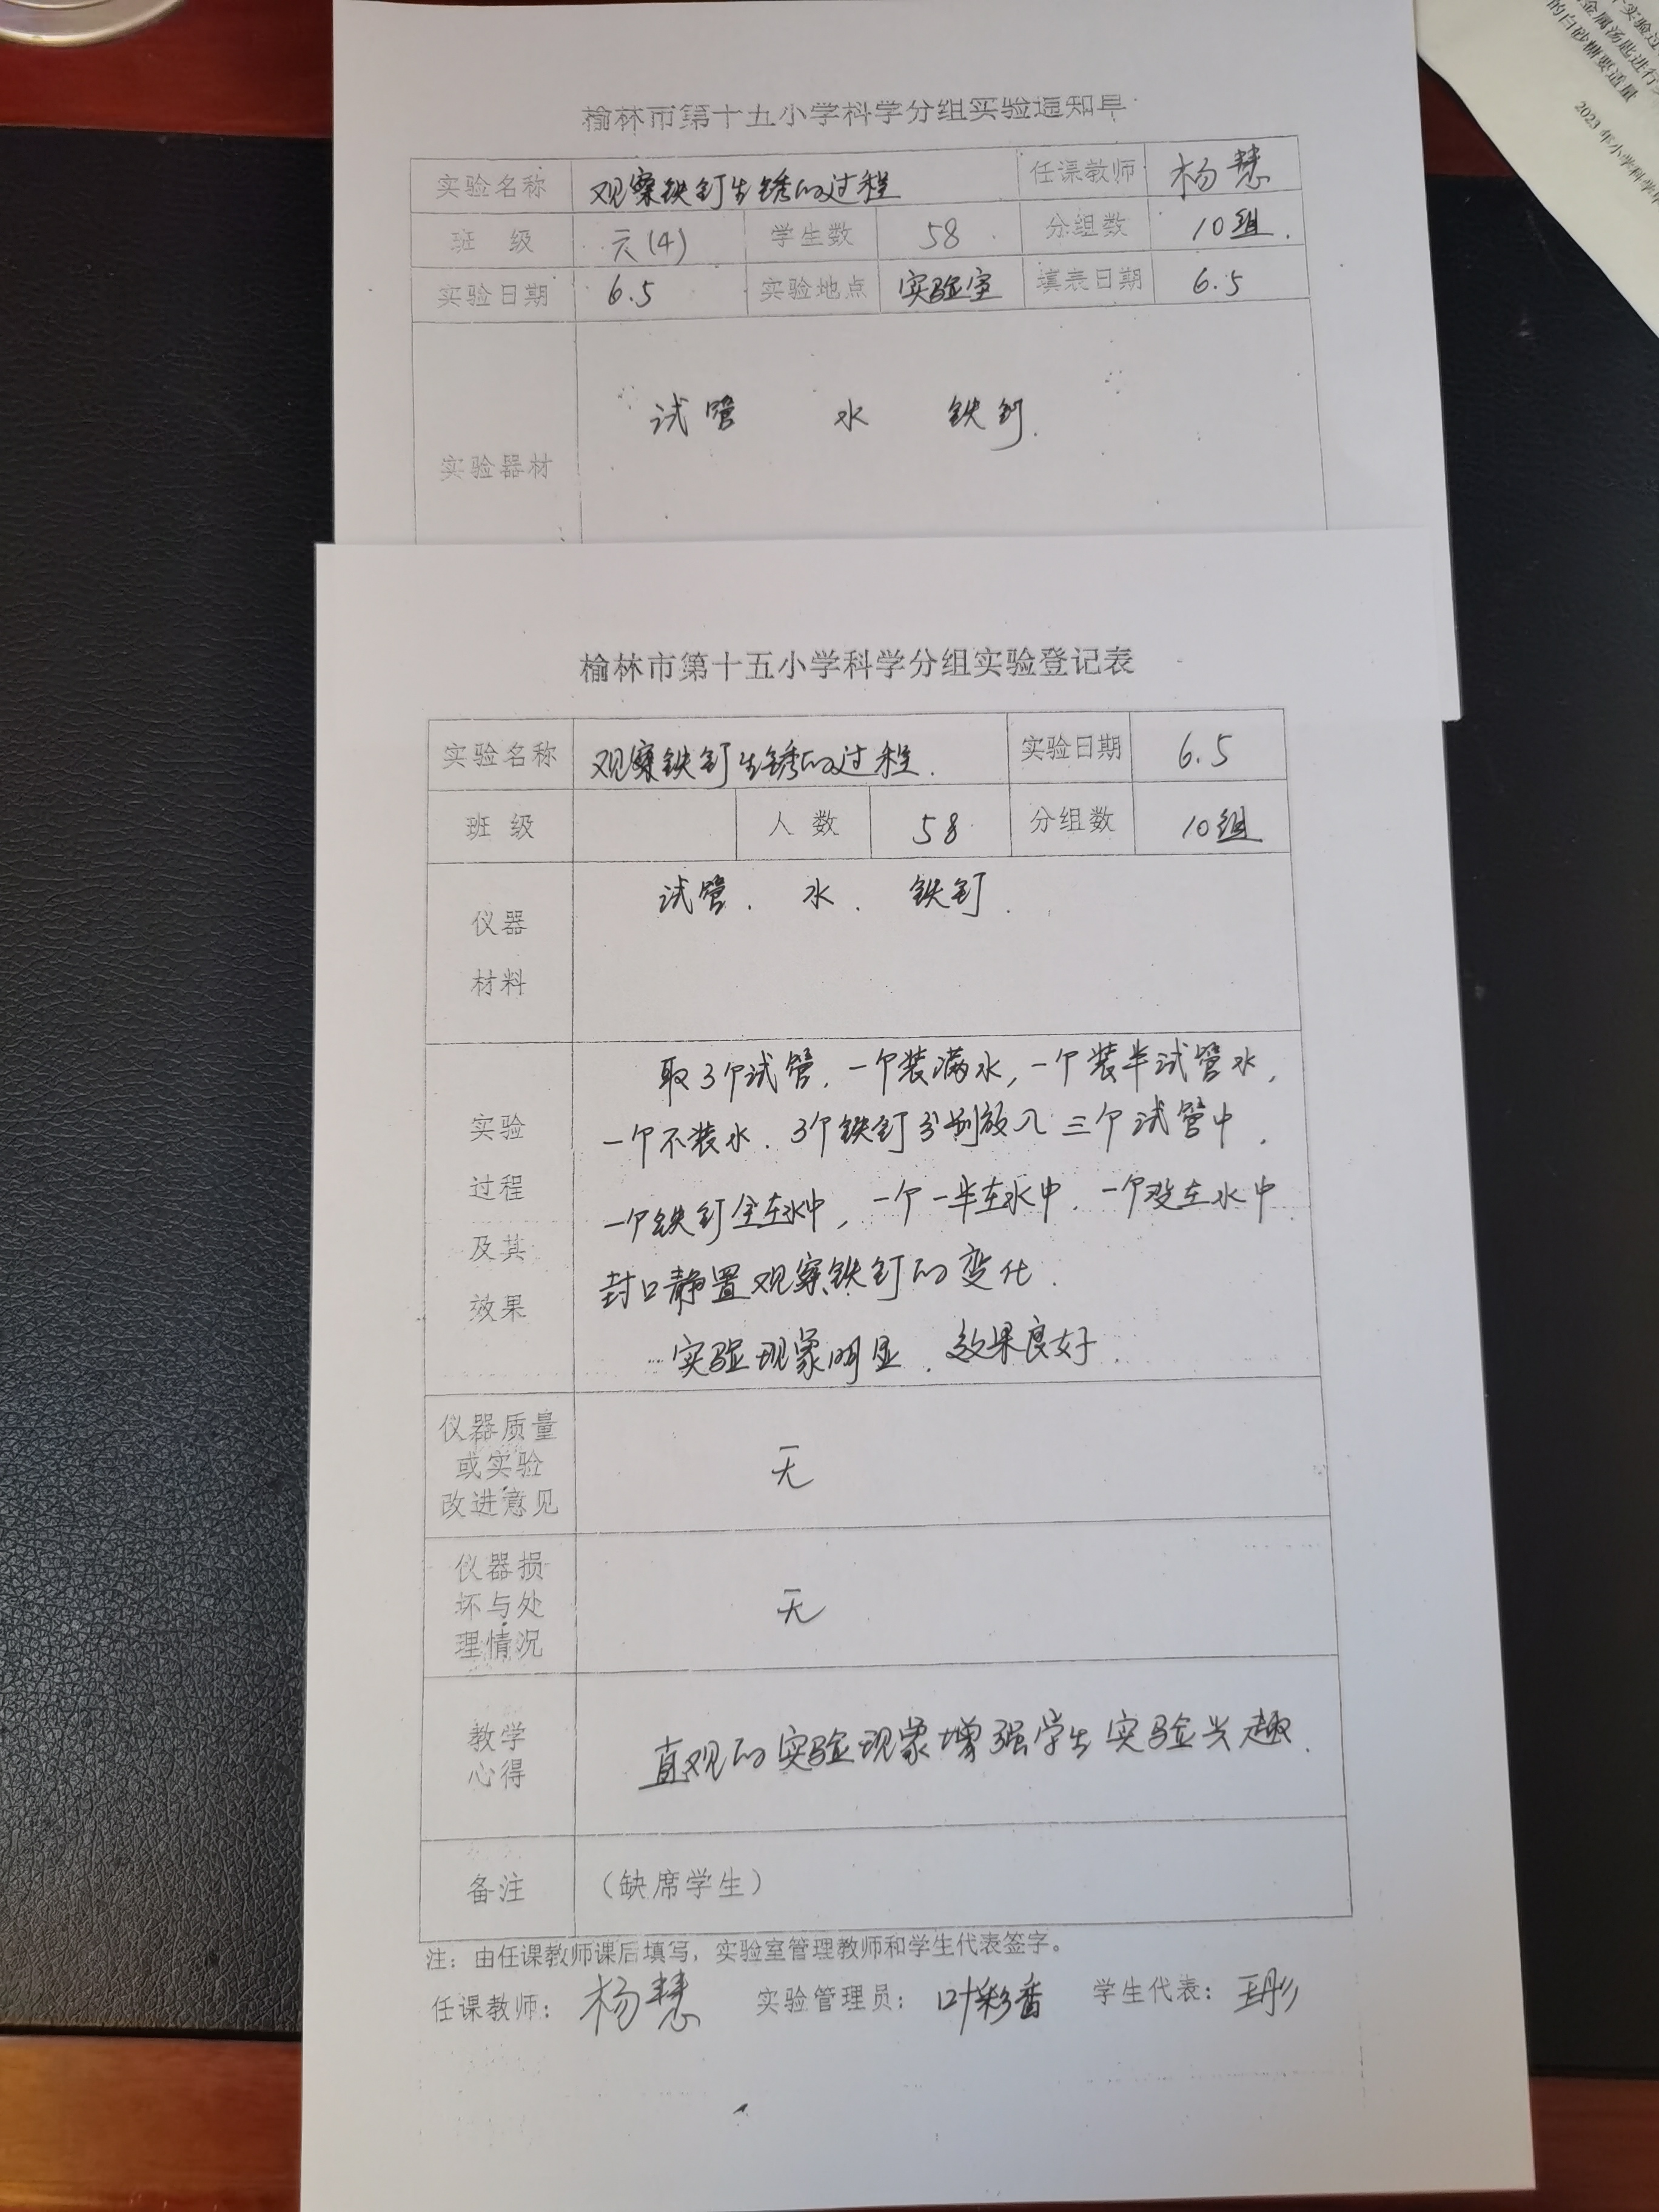 个实验过
金属汤匙进行
的白砂糖要适量
2023年小学科学
榆林市第十五小学科学分组实验通知单
实验名称 观察铁钉生锈的过程 任课教师 杨慧
班 级 六(4) 学生数 58 分组数 10组.
实验日期 6.5 实验地点 实验室 填表日期 6.5
试管 水 铁钉.
实验器材
榆林市第十五小学科学分组实验登记表
实验名称 观察铁钉生锈的过程. 实验日期 6.5
班 级 人 数 58 分组数 10组
试管. 水. 铁钉.
仪器
材料
取3个试管,一个装满水,一个装半试管水,
实验 一个不装水.3个铁钉分别放入三个试管中,
过程 一个铁钉全在水中,一个一半在水中.一个没在水中
及其 封口静置观察铁钉的变化.
效果
实验现象明显.效果良好.
仪器质量
或实验 无
改进意见
仪器损
坏与处 无
理情况
教学 直观的实验现象增强学生实验兴趣.
心得
备注 （缺席学生）
注：由任课教师课后填写，实验室管理教师和学生代表签字。
任课教师： 杨慧 实验管理员： 叶彩香 学生代表：